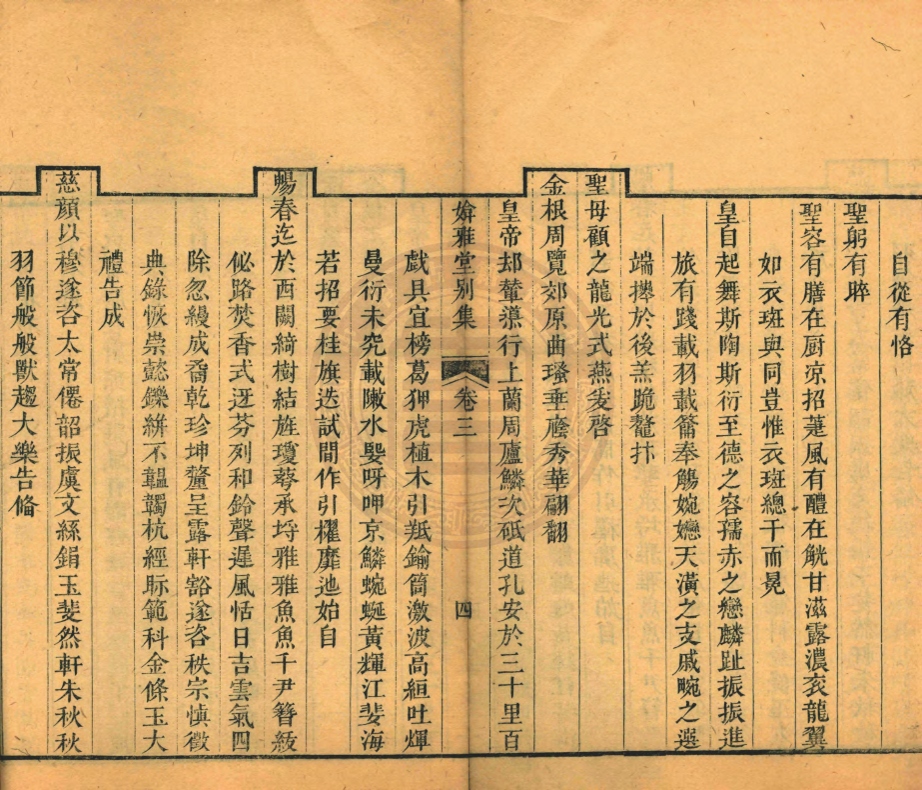 自從有恪
聖躬有晬
聖容有膳在厨凉招萐風有醴在觥甘滋露濃衮龍翼
如衣斑與同豈惟衣斑總干而晃
皇自起舞斯陶斯衍至德之容孺赤之戀麟趾振振進
旅有踐載羽載籥奉觴婉孌天潢之支戚畹之選
端捧於後羔跪鼇抃
聖母顧之龍光式燕爰啓
金根周覽郊原曲瑵垂廕秀華翩翻
皇帝却輦導行上蘭周廬鱗次砥道孔安於三十里百
媕雅堂别集 卷三 四
戲具宜榜葛狎虎植木引羝鍮筒激波高絙吐煇
曼衍未究載敶水嬰呀呷京鱗蜿蜒黃輝江斐海
若招要桂旗迭試間作引櫂靡迆始自
暢春迄於西闕綺樹結旌瓊蕤承埒雅雅魚魚千尹簪紱
佖路焚香式迓芬列和鈴聲遲風恬日吉雲氣四
除忽縵成裔乾珍坤釐呈露軒豁遂咨秩宗愼徽
典錄恢崇懿鑠絣不韞韣杭經眎範科金條玉大
禮告成
慈顔以穆遂咨太常僊韶振虞文絲鋗玉斐然軒朱秋秋
羽節般般獸趨大樂告脩